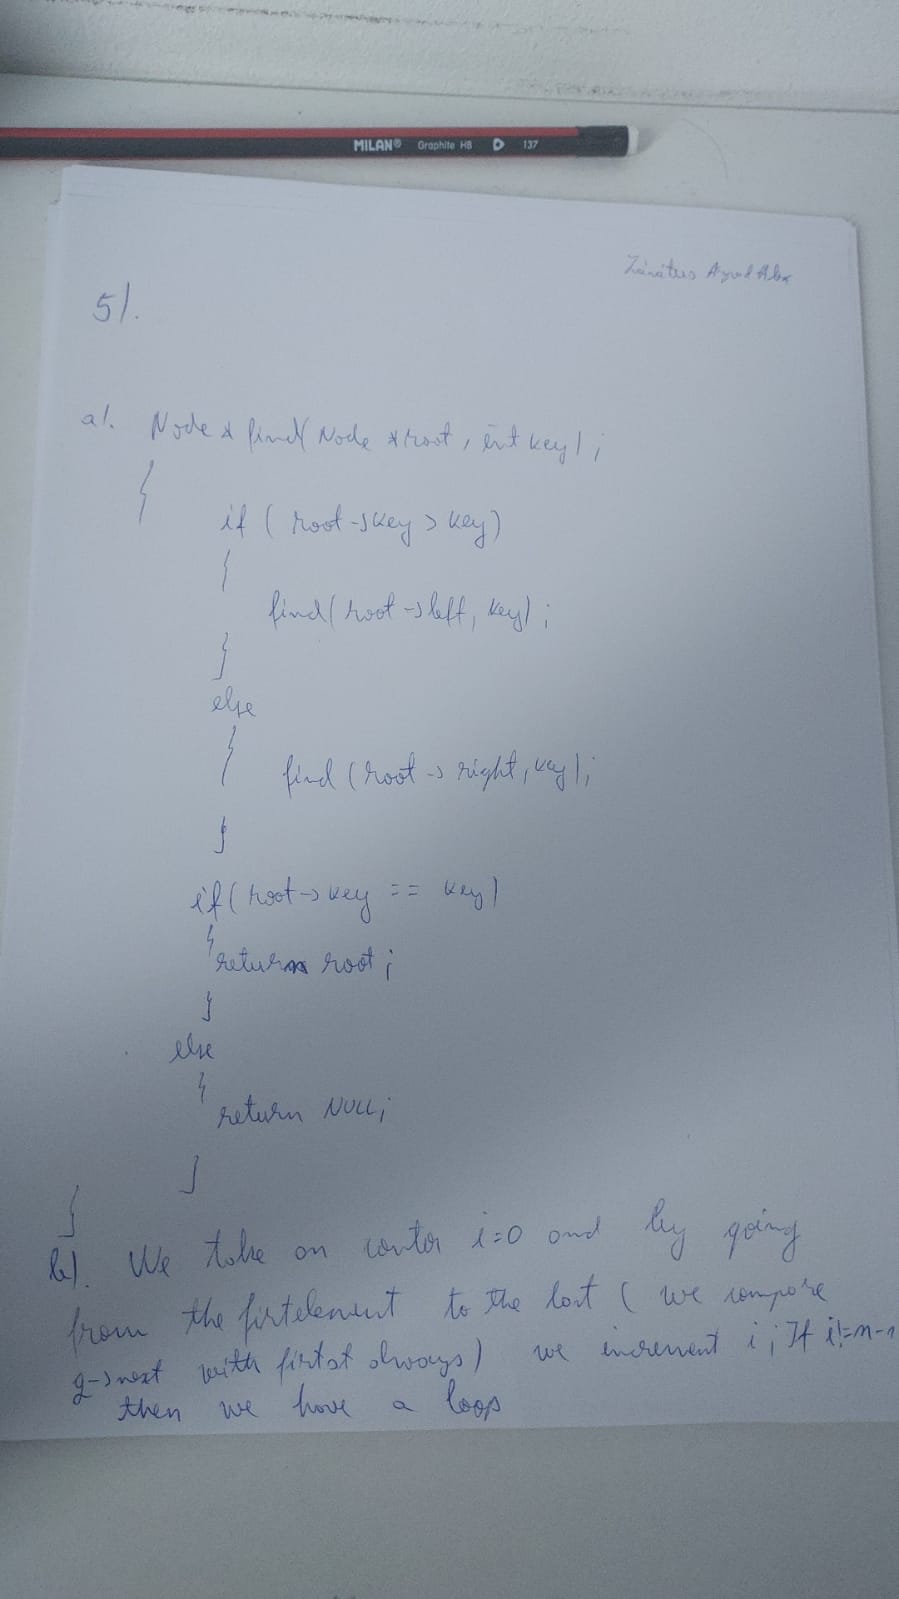 MILAN® Graphite HB 137
5/.
a/. Node * find( Node *root, int key);
{
if ( root->key > key)
{
find( root->left, key);
}
else
{
find (root -> right, key);
}
if( root->key == key)
{
return root;
}
else
{
return NULL;
}
}
b/. We take an contor i=0 and by going
from the firtelement to the last ( we compare
q->next with firtst always) we increment i; If i!=n-1
then we have a loop